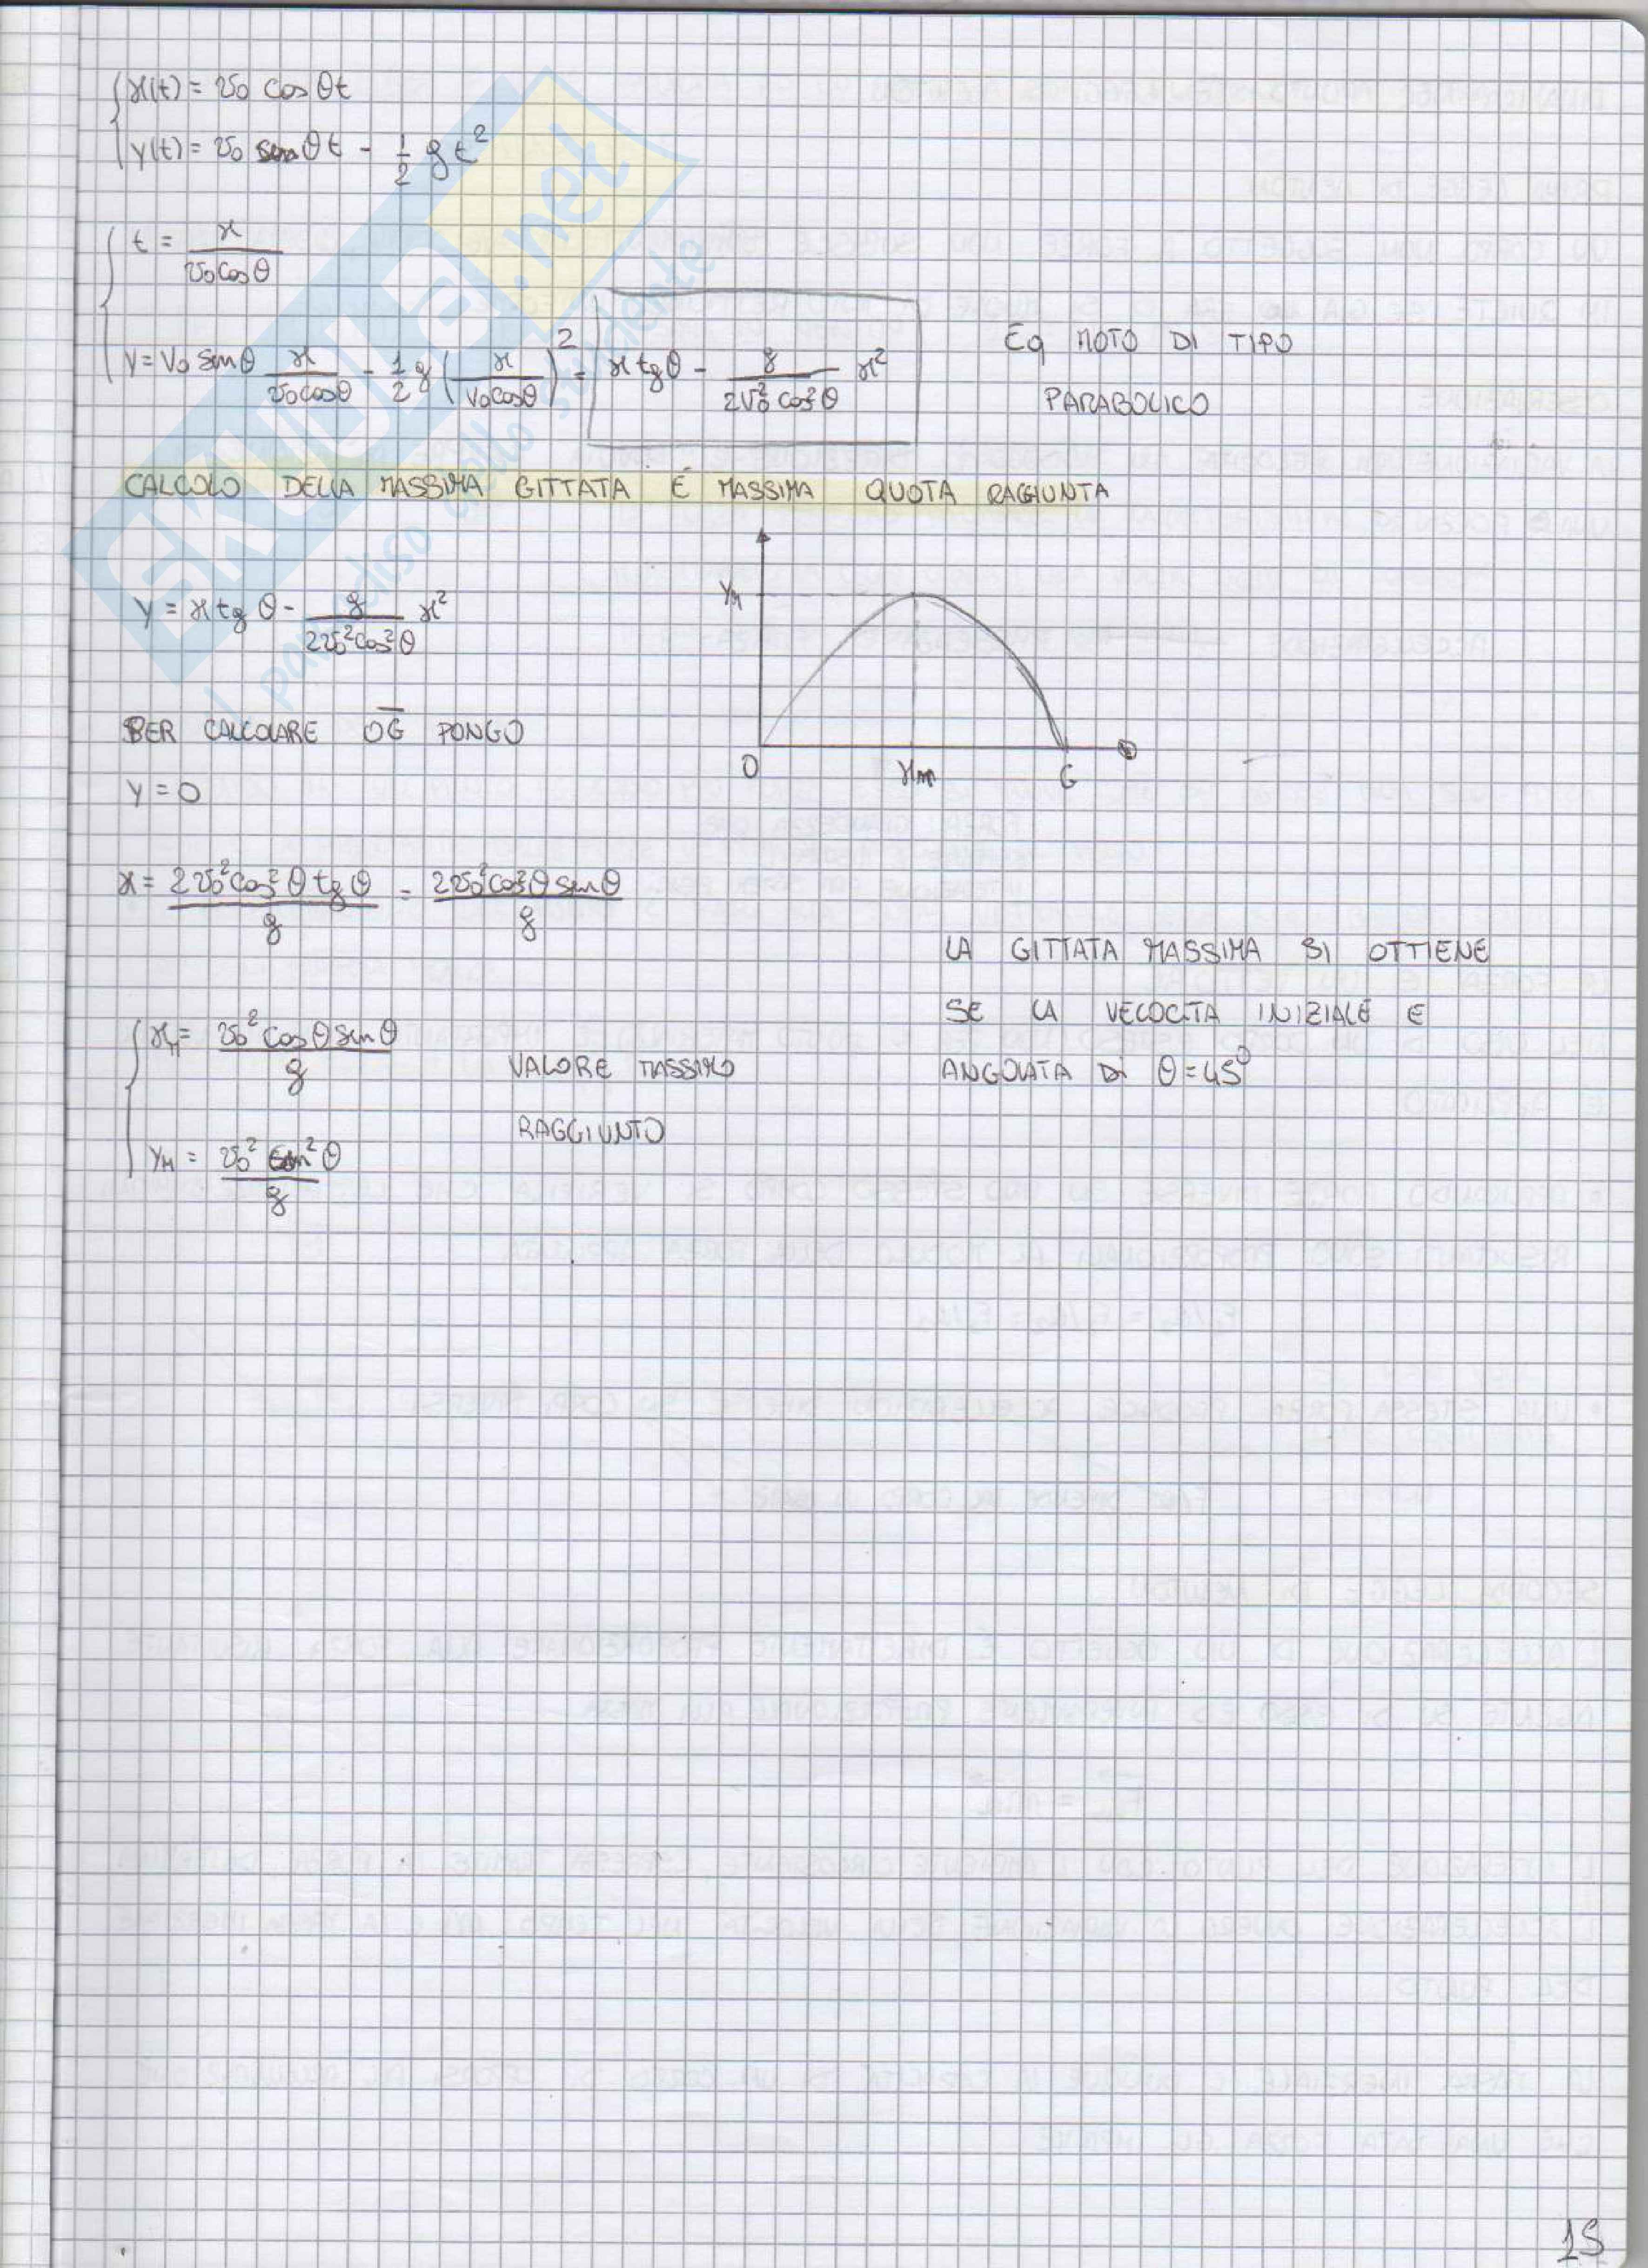 x(t) = v₀ cos θt
y(t) = v₀ sen θt - 1/2 g t²
t = x / v₀cosθ
y = v₀ senθ x / v₀cosθ - 1/2 g (x / v₀cosθ)² = x tgθ - g / 2v₀² cos²θ x²
Eq MOTO DI TIPO
PARABOLICO
CALCOLO DELLA MASSIMA GITTATA E MASSIMA QUOTA RAGGIUNTA
y = x tg θ - g / 2v₀²cos²θ x²
yM
O xM G
PER CALCOLARE OG PONGO
y = 0
x = 2v₀²cos²θ tgθ / g = 2v₀²cos²θ senθ / g
LA GITTATA MASSIMA SI OTTIENE
SE LA VELOCITA INIZIALE E
ANGOLATA DI θ = 45°
xM = v₀² cosθ senθ / g
VALORE MASSIMO
RAGGIUNTO
yM = v₀² sen²θ / g
15
SKUOLA.net
il paradiso dello studente